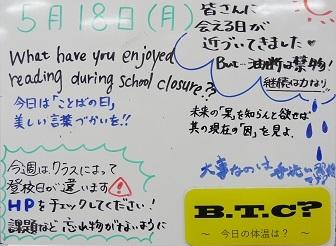 5月18日(月)
What have you enjoyed
reading during school closure??
今日は「ことばの日」
美しい言葉づかいを!!
今週はクラスによって
登校日が違います
HPをチェックしてください!
課題など忘れ物がないように
皆さんに
会える日が
近づいてきました
But…油断は禁物!
継続は力なり
未来の「果」を知らんと欲せば
其の現在の「因」を見よ。
大事なのは
B.T.C?
~ 今日の体温は? ~